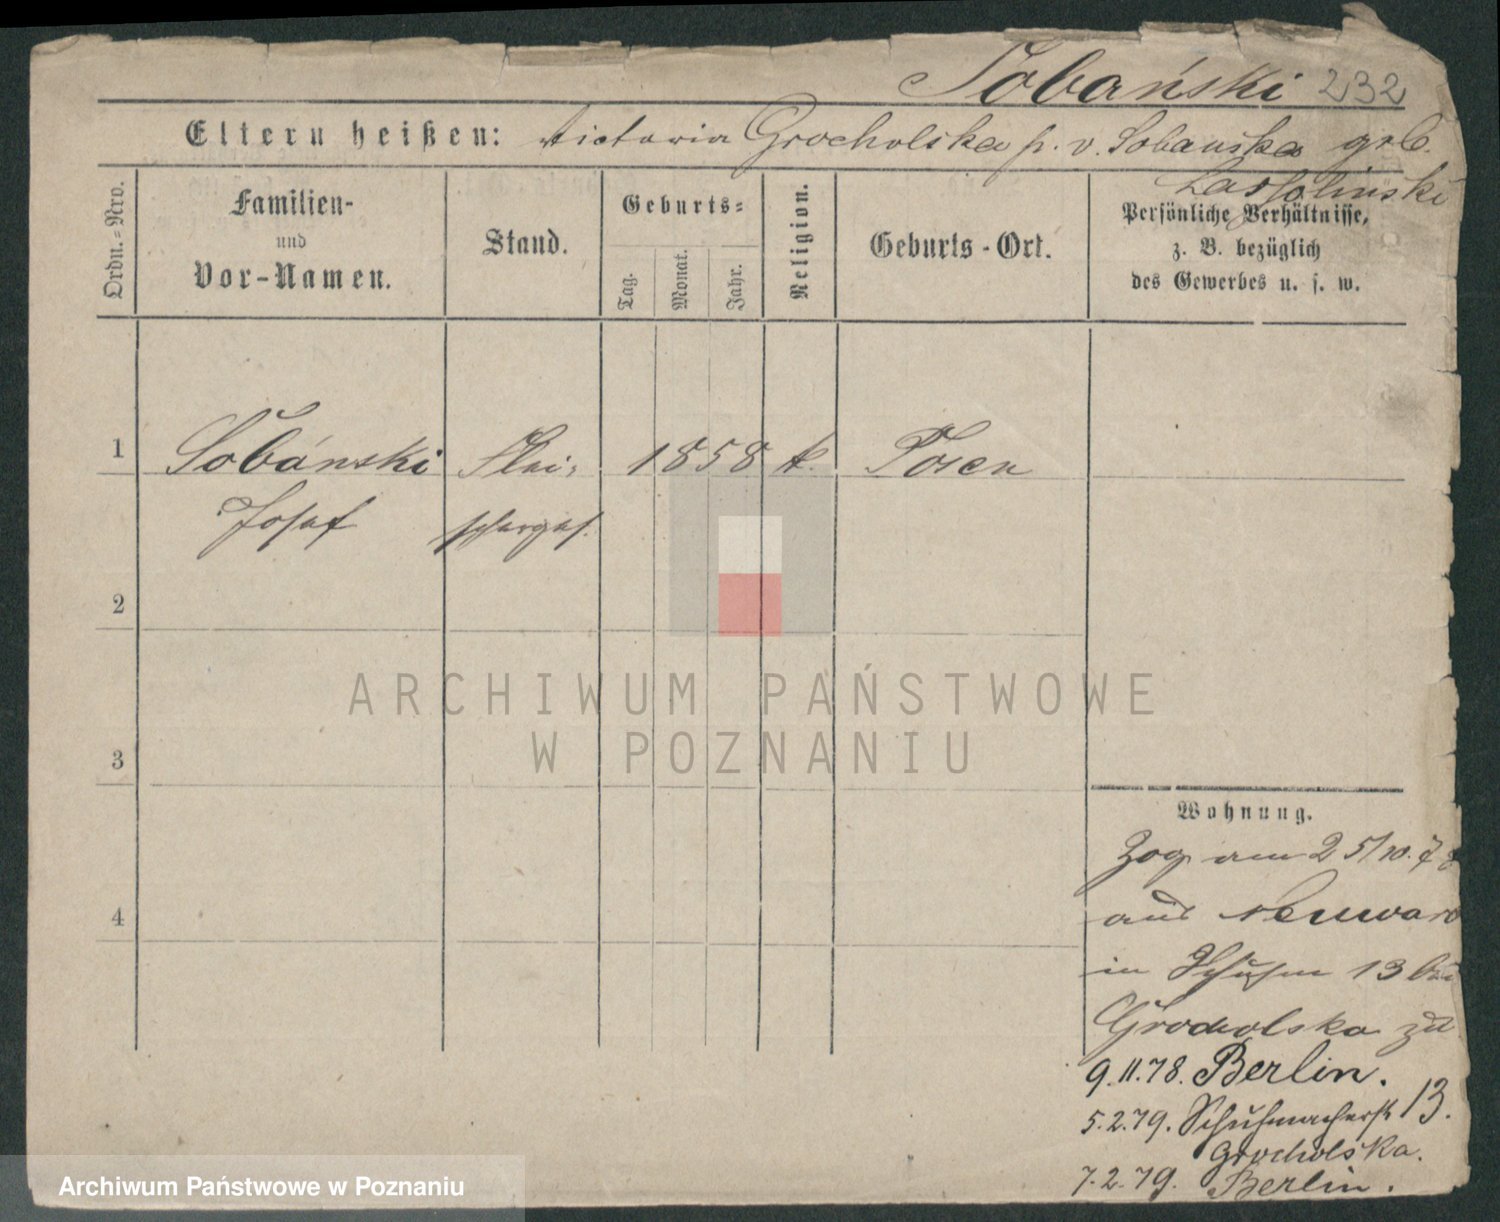 Sobański 232
Eltern heißen: Victoria Grocholska p. v. Sobańska geb.
Ordn.-Nro.
Familien-
und
Vor-Namen.
Stand.
Geburts-
Tag.
Monat.
Jahr.
Religion.
Geburts-Ort.
Persönliche Verhältnisse,
z. B. bezüglich
des Gewerbes u. s. w.
1 Sobánski Flei- 1858 k. Posen
Josef schergs.
2
3
4
Wohnung.
Zog am 25/10. 78
aus
in 13 bei
Grocholska zu
9.11.78. Berlin.
5.2.79. Schuhmacherst 13.
Grocholska.
7.2.79. Berlin.
ARCHIWUM PAŃSTWOWE
W POZNANIU
Archiwum Państwowe w Poznaniu